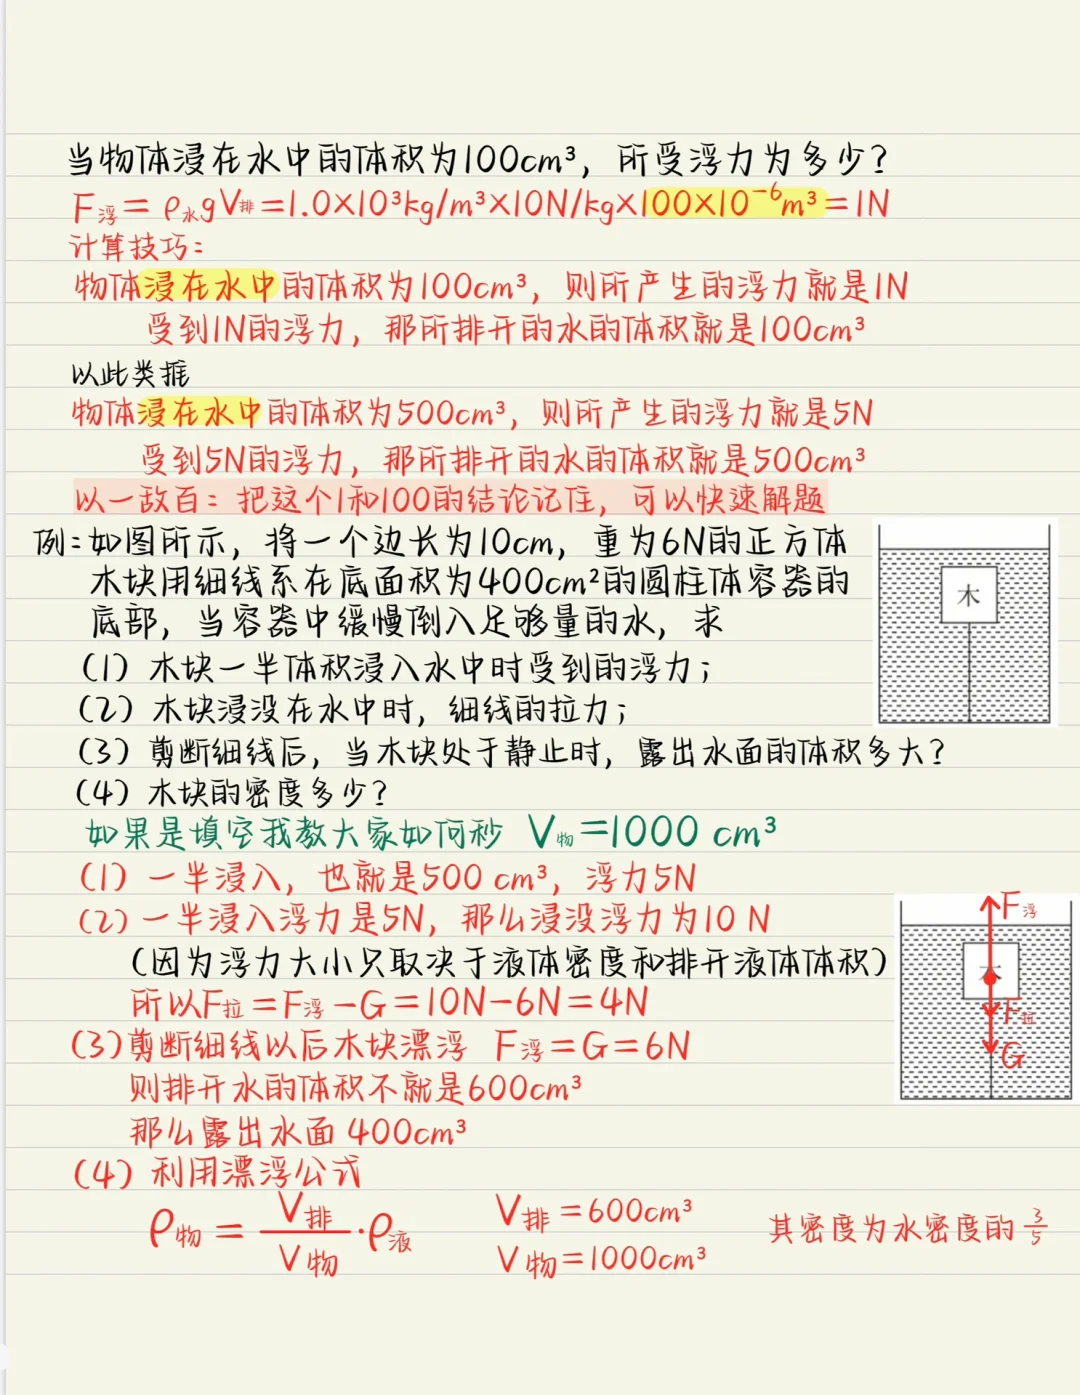 当物体浸在水中的体积为100cm³，所受浮力为多少？
F浮=ρ水gV排=1.0×10³kg/m³×10N/kg×100×10⁻⁶m³=1N
计算技巧：
物体浸在水中的体积为100cm³，则所产生的浮力就是1N
受到1N的浮力，那所排开的水的体积就是100cm³
以此类推
物体浸在水中的体积为500cm³，则所产生的浮力就是5N
受到5N的浮力，那所排开的水的体积就是500cm³
以一敌百：把这个1和100的结论记住，可以快速解题
例：如图所示，将一个边长为10cm，重为6N的正方体
木块用细线系在底面积为400cm²的圆柱体容器的
底部，当容器中缓慢倒入足够量的水，求
木
（1）木块一半体积浸入水中时受到的浮力；
（2）木块浸没在水中时，细线的拉力；
（3）剪断细线后，当木块处于静止时，露出水面的体积多大？
（4）木块的密度多少？
如果是填空我教大家如何秒 V物=1000 cm³
（1）一半浸入，也就是500 cm³，浮力5N
（2）一半浸入浮力是5N，那么浸没浮力为10 N
（因为浮力大小只取决于液体密度和排开液体体积）
所以F拉=F浮-G=10N-6N=4N
F浮
木
F拉
G
（3）剪断细线以后木块漂浮 F浮=G=6N
则排开水的体积不就是600cm³
那么露出水面 400cm³
（4）利用漂浮公式
ρ物=V排/V物·ρ液
V排=600cm³
V物=1000cm³
其密度为水密度的3/5